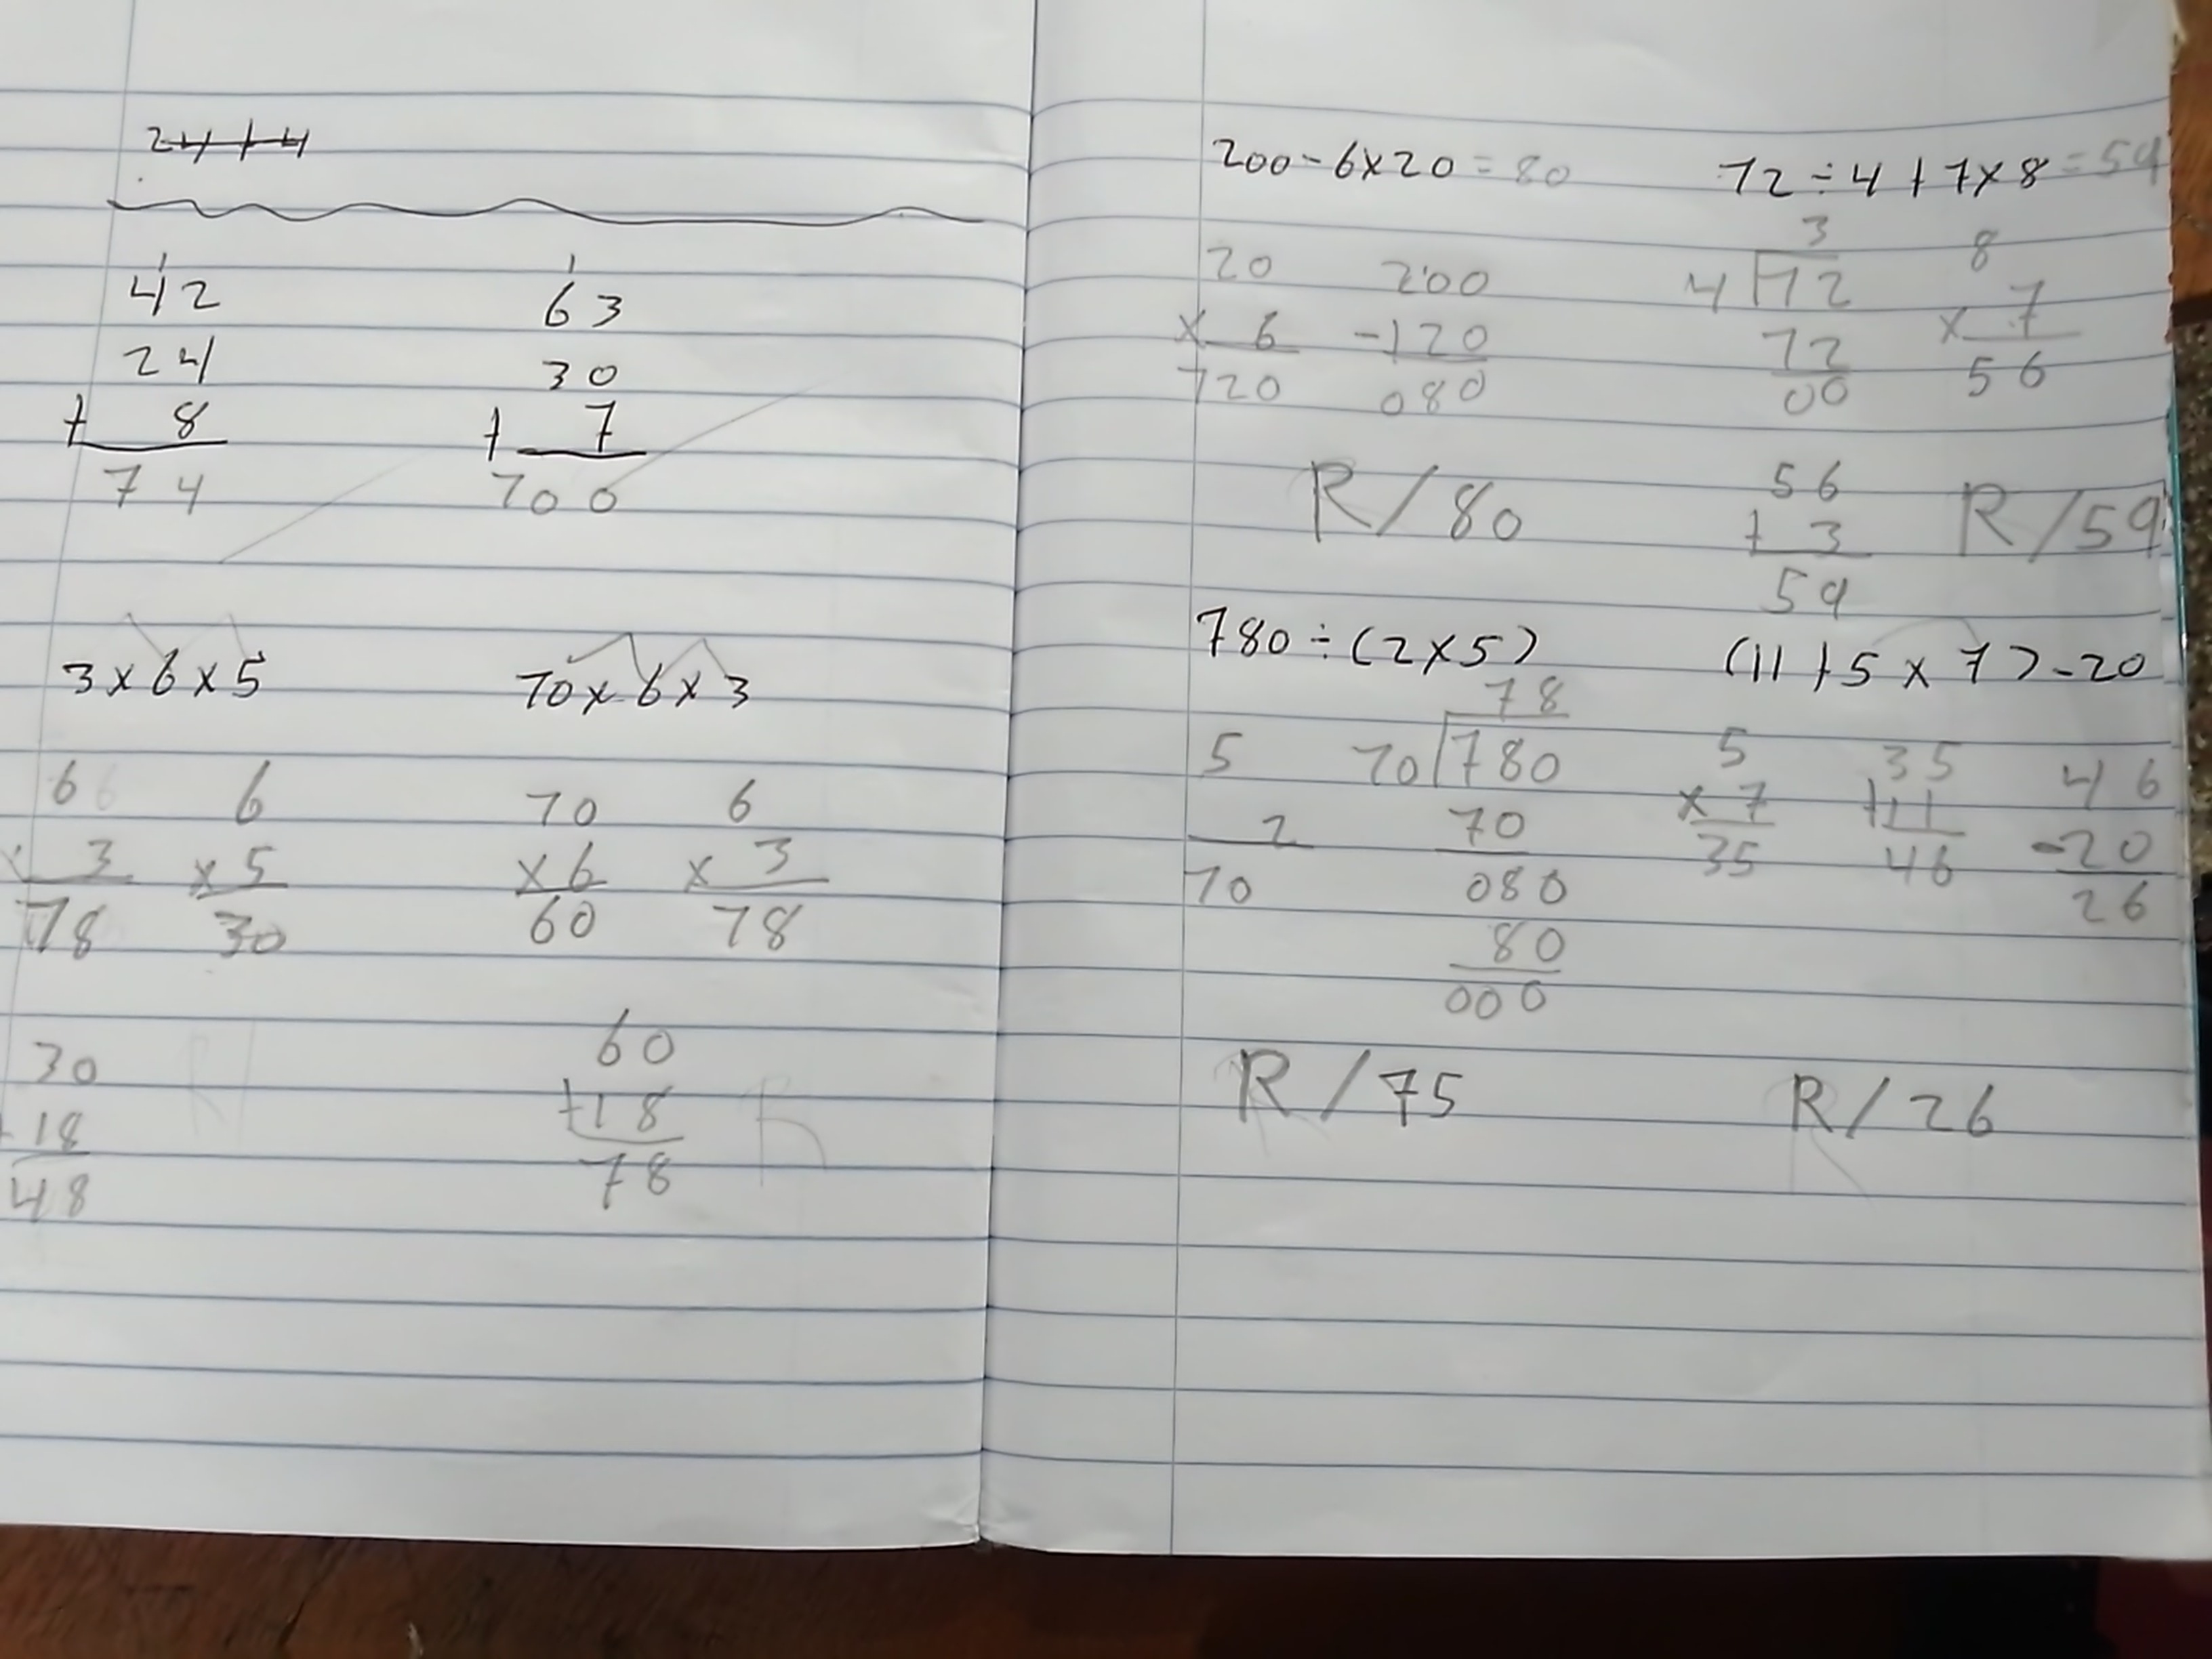 24+4
42 63
24 30
+ 8 + 7
74 100
3x6x5 10x6x3
6 6 10 6
x 3 x 5 x6 x 3
18 30 60 18
30 60
+18 +18
48 78
200-6x20=80 12÷4+7x8=59
3
20 200 4 12 8
x 6 -120 12 x 7
120 080 00 56
R/80 56
+ 3 R/59
59
180÷(2x5) (11+5x7)-20
18
5 10 180 5 35 46
2 10 x 7 +11 -20
10 080 35 46 26
80
000
R/15 R/26